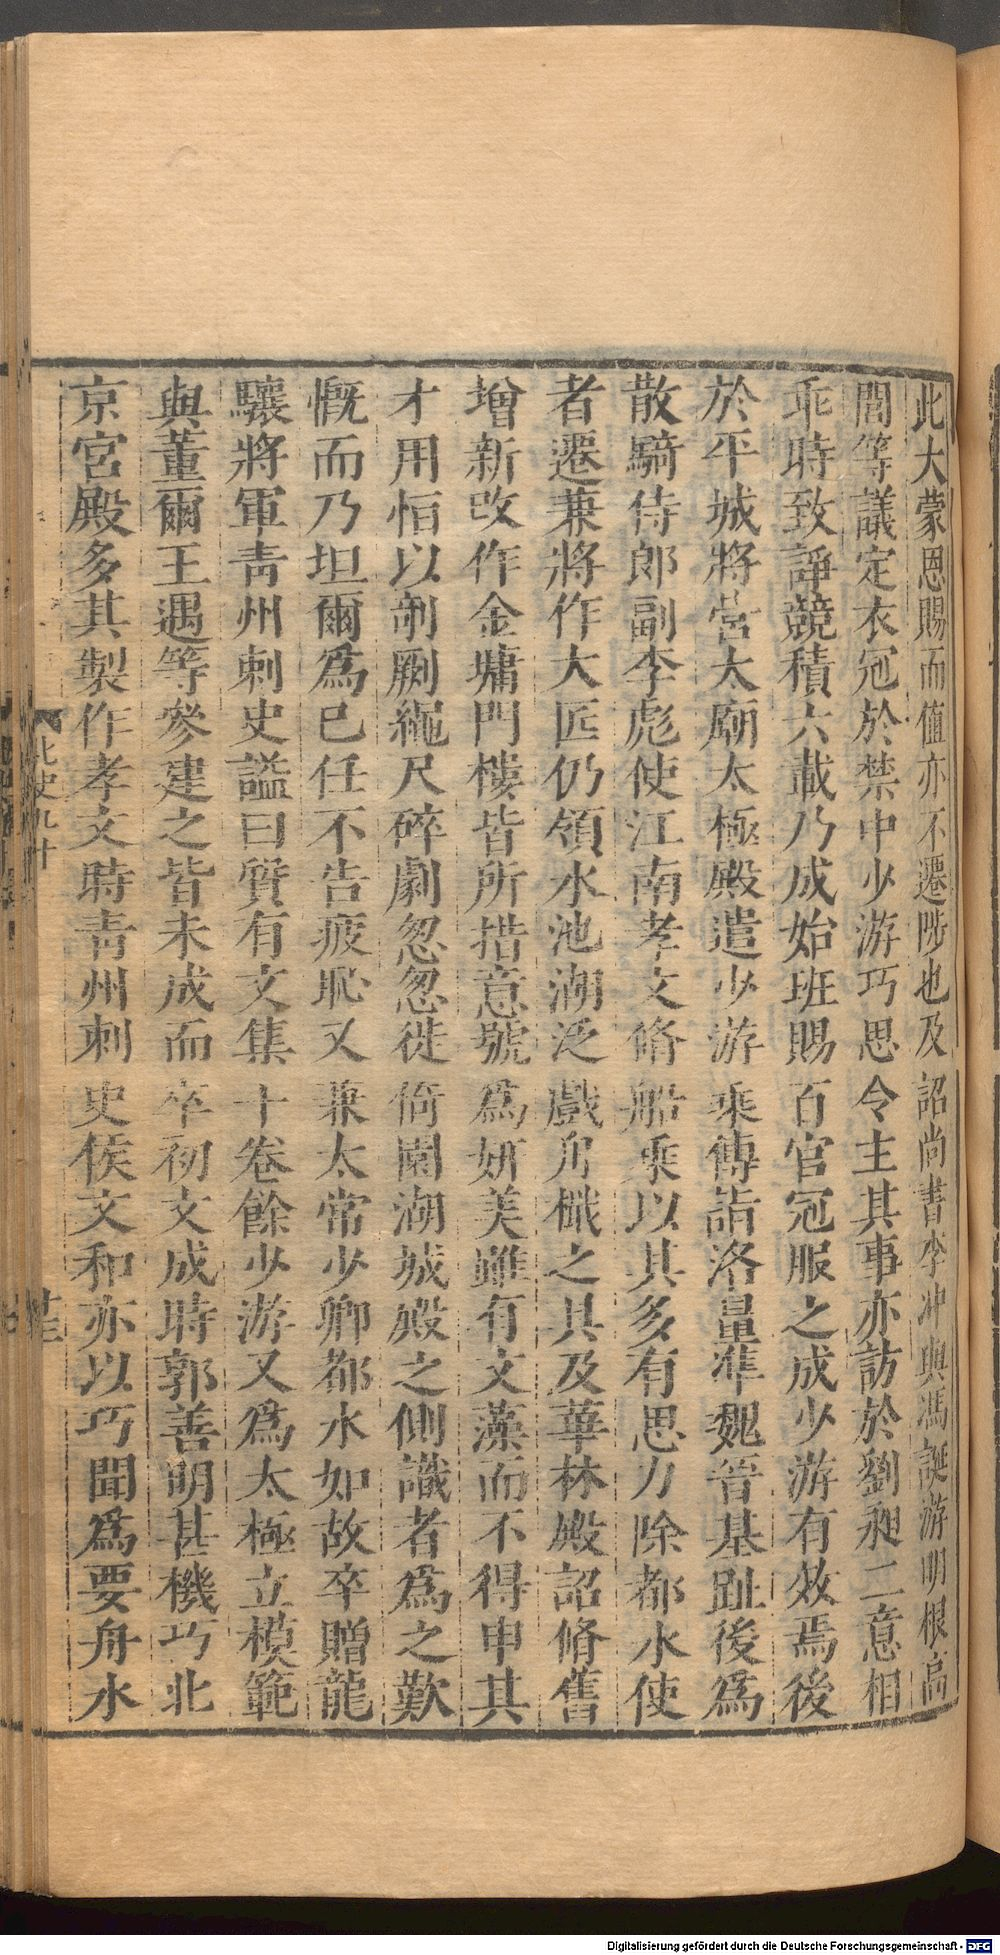 此大蒙恩賜而值亦不遷陟也及詔尚書李冲與馮誕游明根高
閭等議定衣冠於禁中少游巧思令主其事亦訪於劉昶二意相
乖時致諍競積六載乃成始班賜百官冠服之成少游有效焉後
於平城將營太廟太極殿遣少游乘傳詣洛量準魏晉基趾後為
散騎侍郎副李彪使江南孝文脩船乘以其多有思力除都水使
者遷兼將作大匠仍領水池湖泛戲舟檝之具及華林殿詔脩舊
增新改作金墉門樓皆所措意號為妍美雖有文藻而不得申其
才用恒以剞劂繩尺碎劇忽忽徙倚園湖城殿之側識者為之歎
慨而乃坦爾為已任不告疲恥又兼太常少卿都水如故卒贈龍
驤將軍青州刺史謚曰質有文集十卷餘少游又為太極立模範
與董爾王遇等參建之皆未成而卒初文成時郭善明甚機巧北
京宮殿多其製作孝文時青州刺史侯文和亦以巧聞為要舟水
北史九十
Digitalisierung gefördert durch die Deutsche Forschungsgemeinschaft - DFG